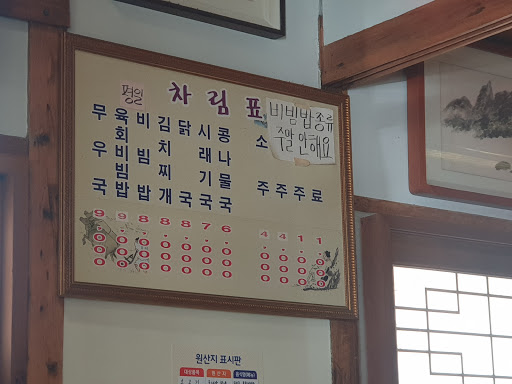 평일
차림표
비빔밥종류
주말 안해요
무우국 9.000
육회비빔밥 9.000
비빔밥 8.000
김치찌개 8.000
닭국 8.000
시래기국 7.000
콩나물국 6.000
소주 4.000
주 4.000
주 1.000
료 1.000
원산지 표시판
원산지